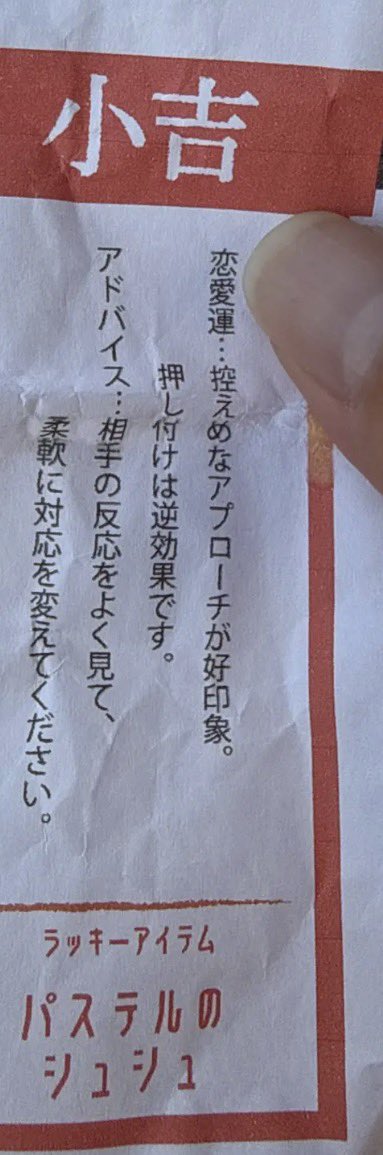 小吉
恋愛運…控えめなアプローチが好印象。
押し付けは逆効果です。
アドバイス…相手の反応をよく見て、
柔軟に対応を変えてください。
ラッキーアイテム
パステルの
シュシュ